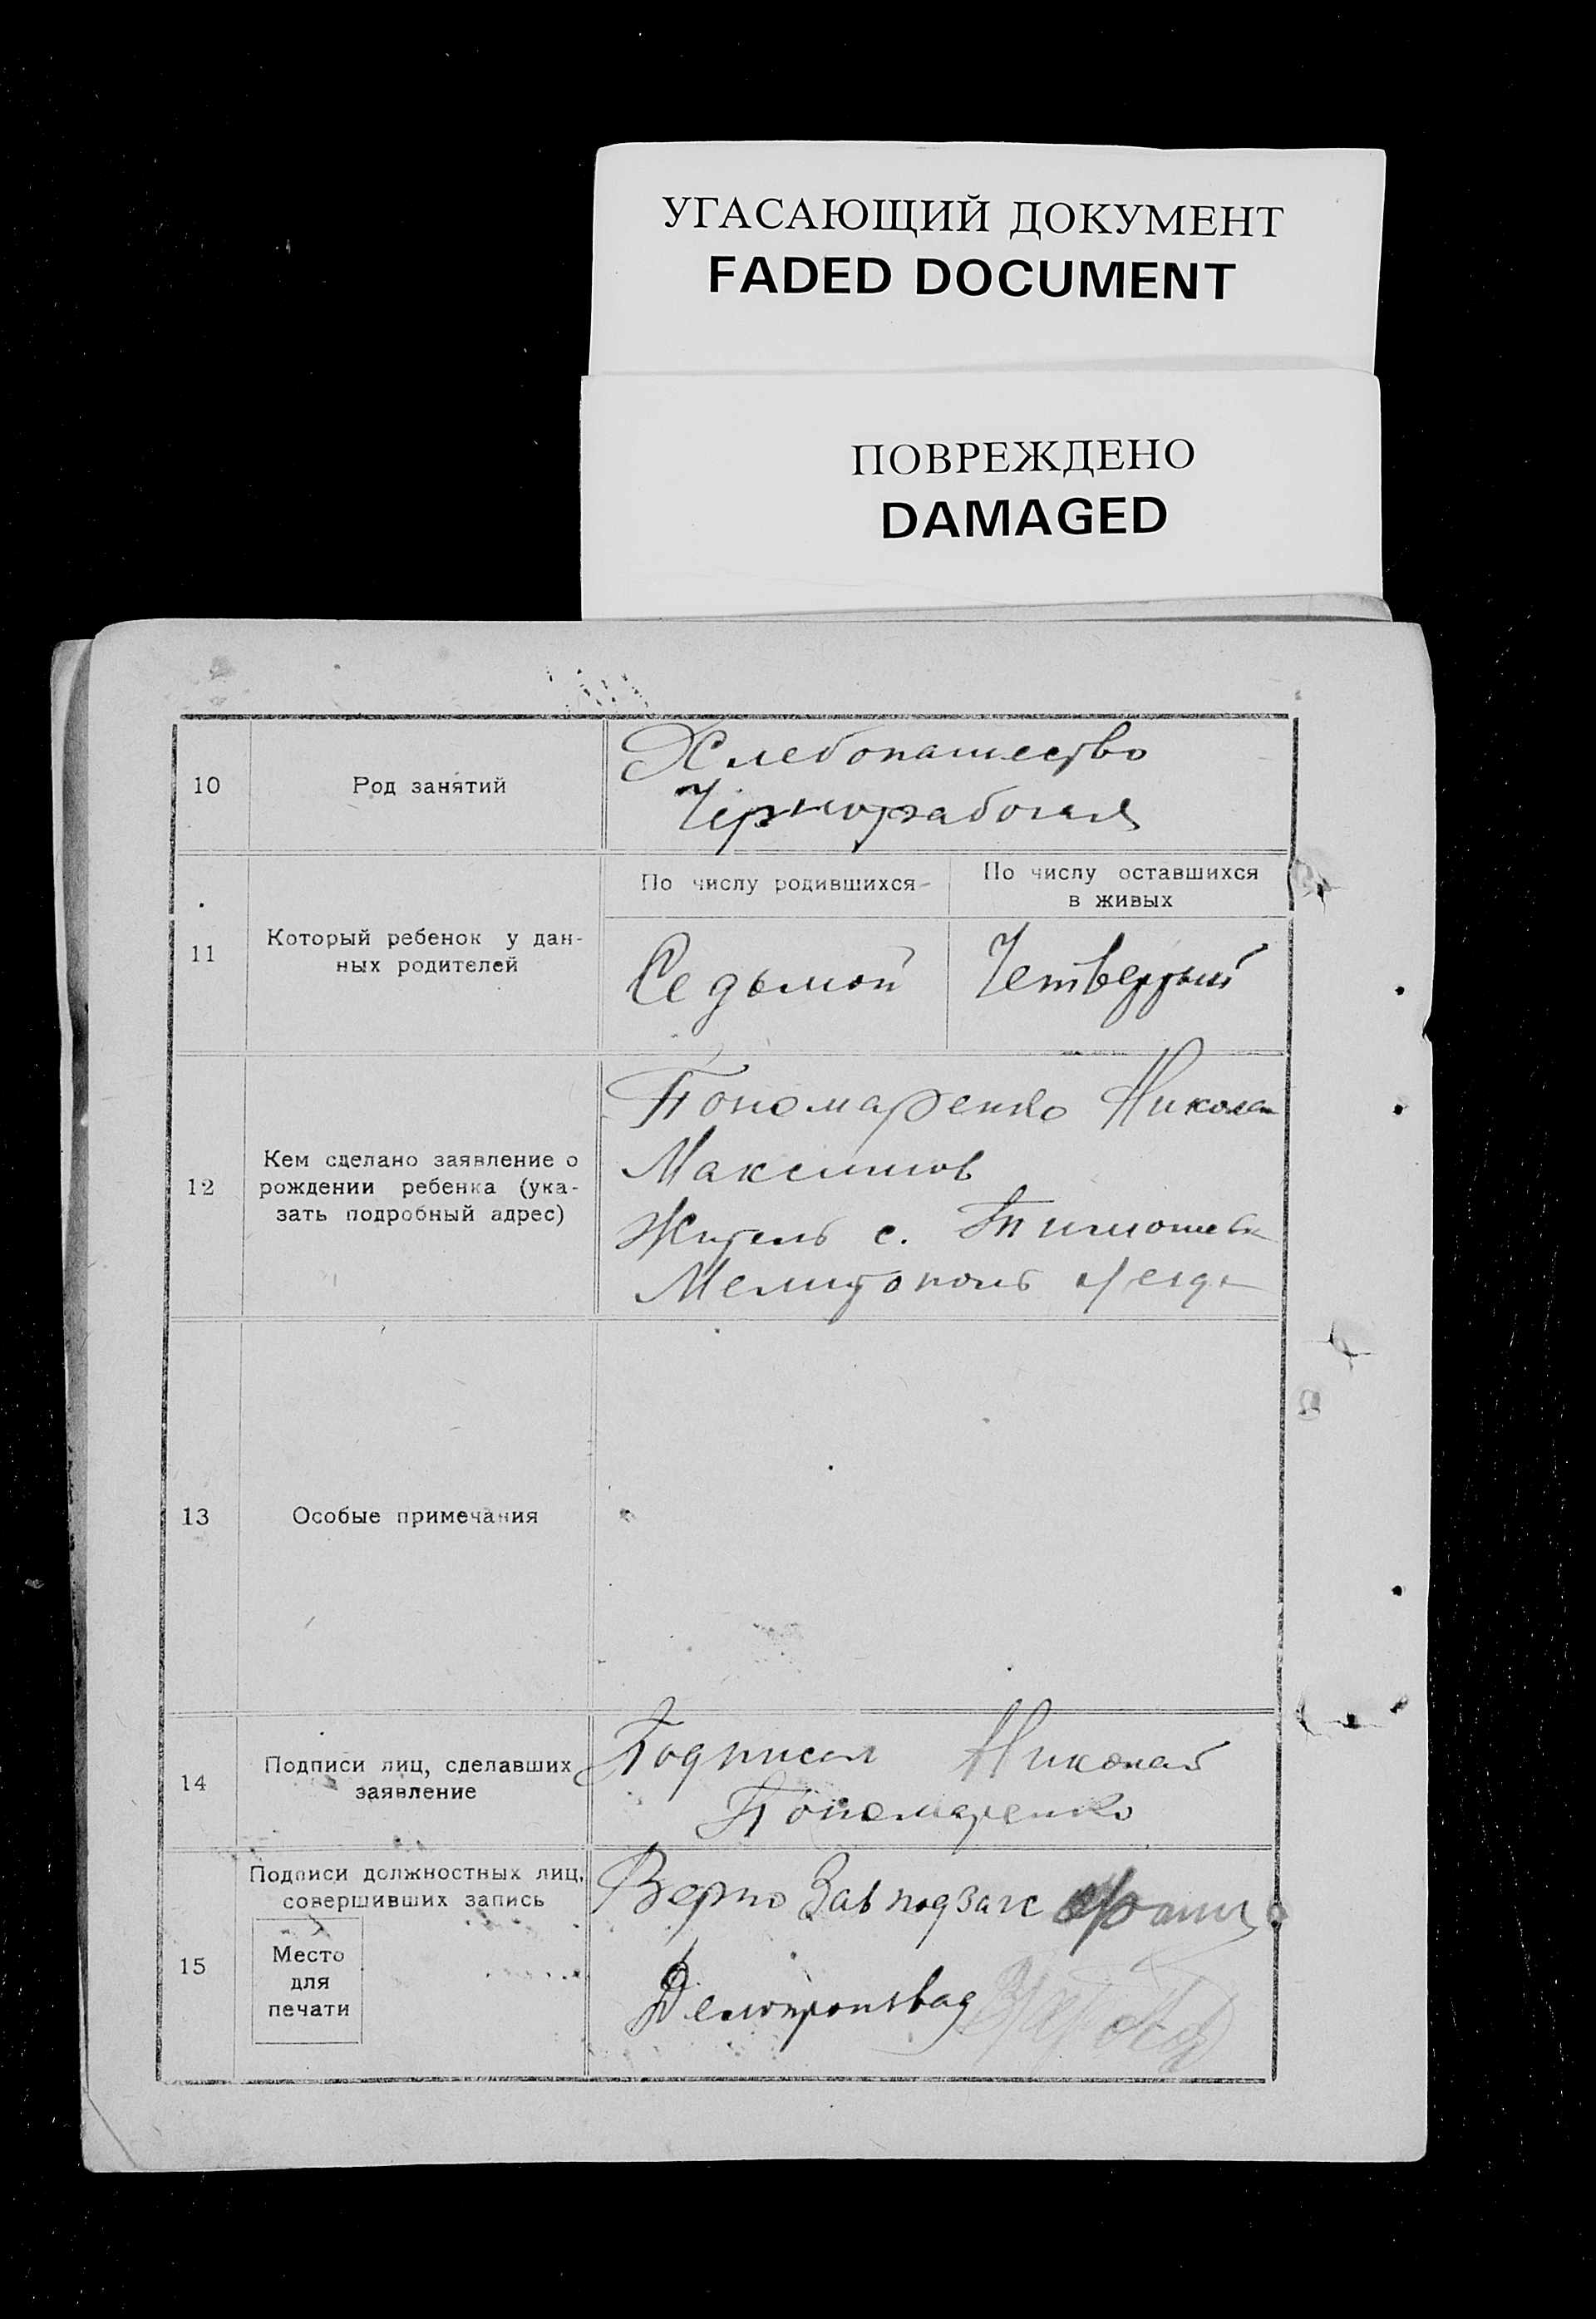 УГАСАЮЩИЙ ДОКУМЕНТ
FADED DOCUMENT
ПОВРЕЖДЕНО
DAMAGED
10
Род занятий
Хлебопашество
Чернорабочая
11
Который ребенок у дан-
ных родителей
По числу родившихся
По числу оставшихся
в живых
Седьмой
Четвертый
12
Кем сделано заявление о
рождении ребенка (ука-
зать подробный адрес)
Пономаренко Николай
Максимов
Житель с. Тимошевки
Мелитополь уезда
13
Особые примечания
14
Подписи лиц, сделавших
заявление
Подписал Николай
Пономаренко
15
Подписи должностных лиц,
совершивших запись
Место
для
печати
Верно Завподзагс
Делопроизвад